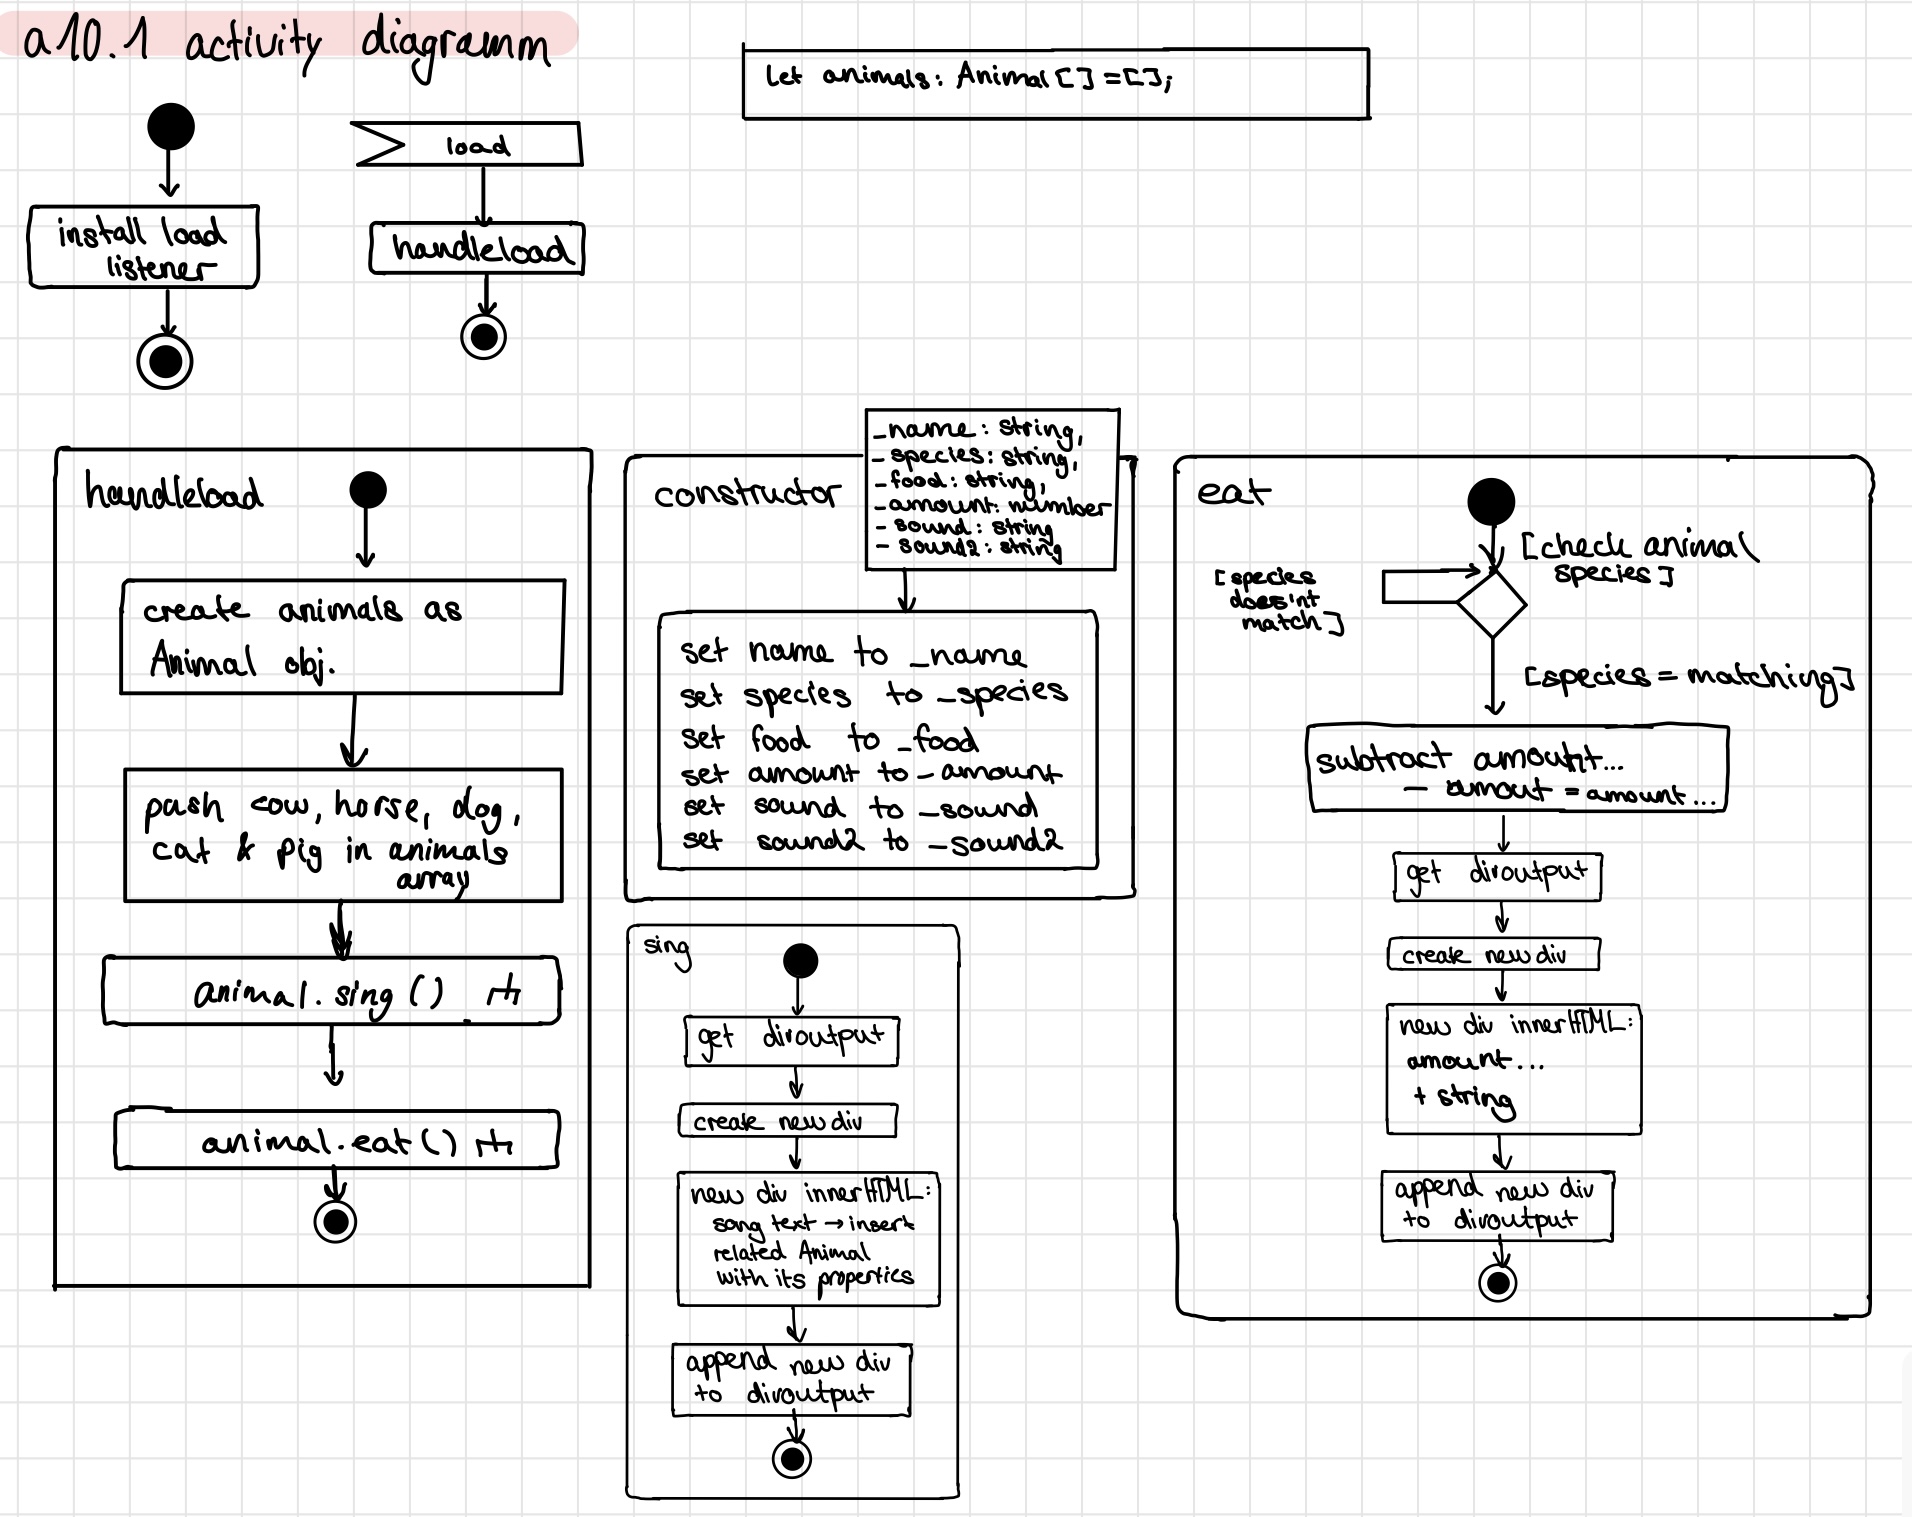 a10.1 activity diagramm
Let animals: Animal[] = [];
install load
listener
load
handleload
handleload
create animals as
Animal obj.
push cow, horse, dog,
cat & pig in animals
array
animal.sing()
animal.eat()
constructor
_name: string,
_species: string,
_food: string,
_amount: number
_sound: string
_sound2: string
set name to _name
set species to _species
set food to _food
set amount to _amount
set sound to _sound
set sound2 to _sound2
sing
get divoutput
create new div
new div innerHTML:
song text → insert
related Animal
with its properties
append new div
to divoutput
eat
[check animal
species]
[species
does'nt
match]
[species = matching]
subtract amount...
- amout = amount...
get divoutput
create new div
new div innerHTML:
amount...
+ string
append new div
to divoutput